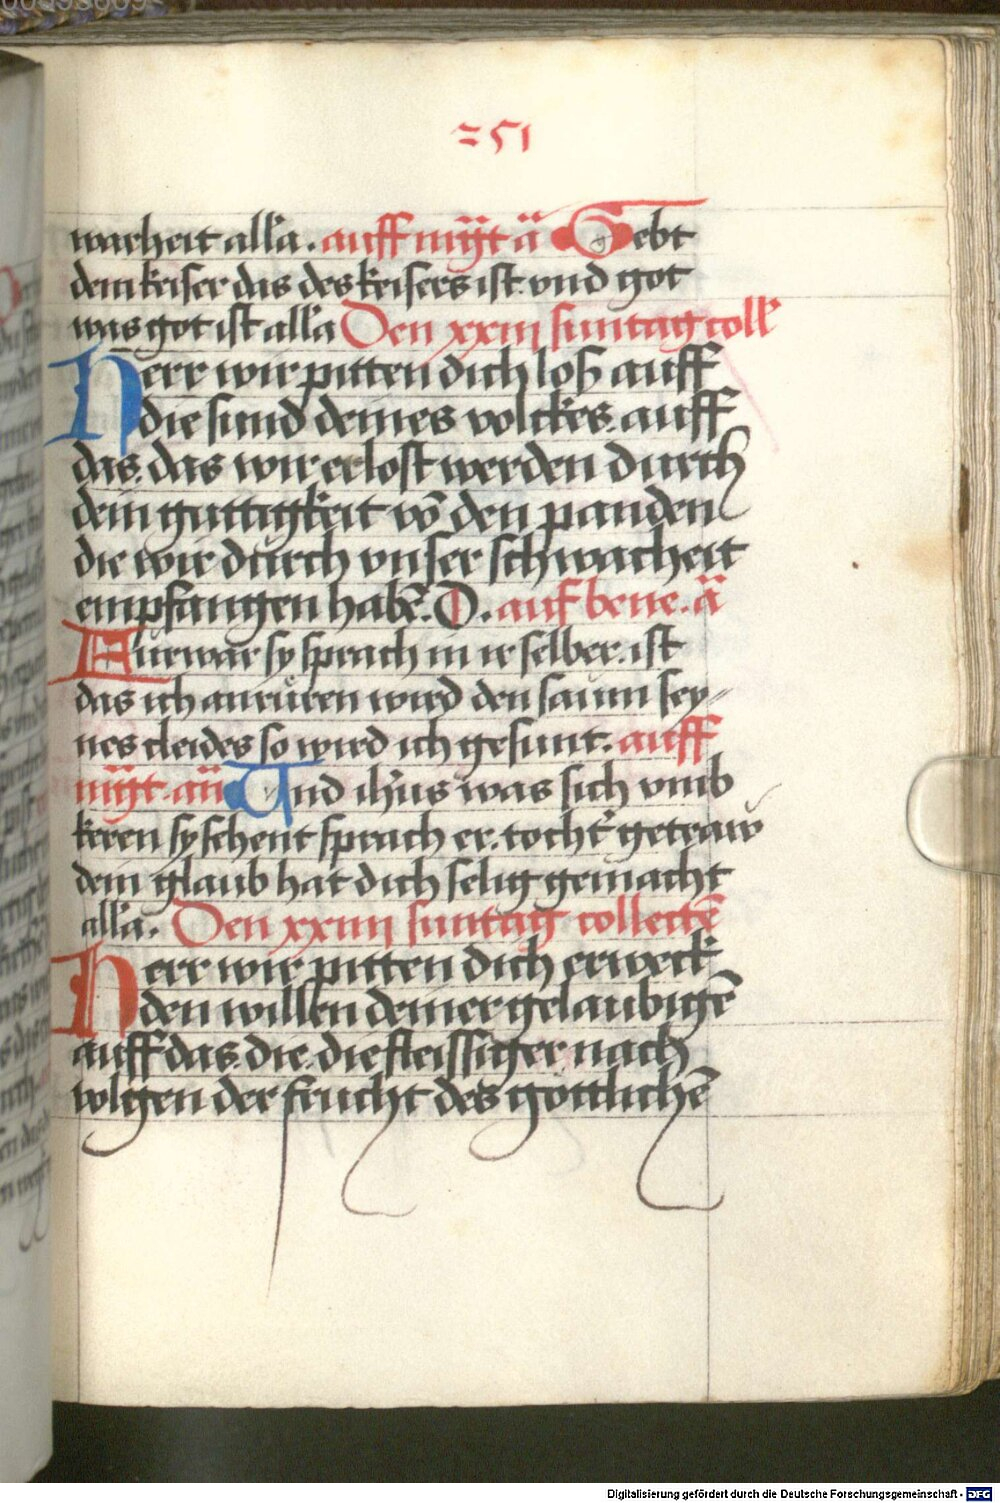 251
warheit all'a. auff mg̃t ã Gebt
dem keiser das des keisers ist vnd got
was got ist all'a Den xxiii suntag coll'
Herr wir pitten dich losz auff
die sund deines volckes. auff
das. das wir erlost werden durch
dein guttigkeit võ den panden
die wir durch vnser schwacheit
empfangen habẽ. D. auf bene. ã
Furwar sy sprach in ir selber. ist
das ich anruren wird den saum sey-
nes cleides so wird ich gesunt. auff
mg̃t. añ Und ihũs was sich vmb
keren sy sehent sprach er. tocht' getraw
dein glaub hat dich selig gemacht
all'a. Den xxiiii suntag collectẽ
Herr wir pitten dich erweck
den willen deiner gelaubigẽ
auff das. die. die fleissiger nach
volgen der frucht des gottlichẽ
Digitalisierung gefördert durch die Deutsche Forschungsgemeinschaft - DFG